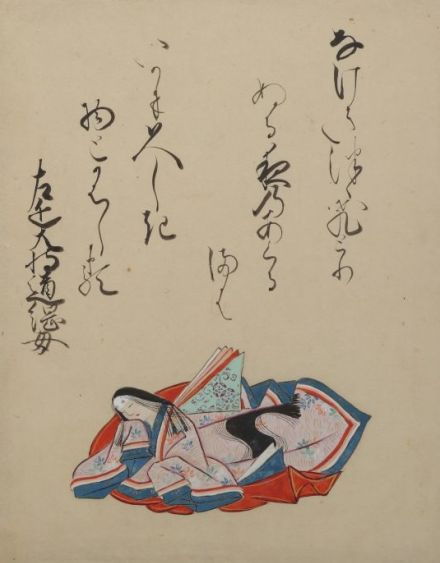 なけきつゝひとり
ぬる夜のあくる
まは
いかに久しき
物とかはしる
左近大将道綱母